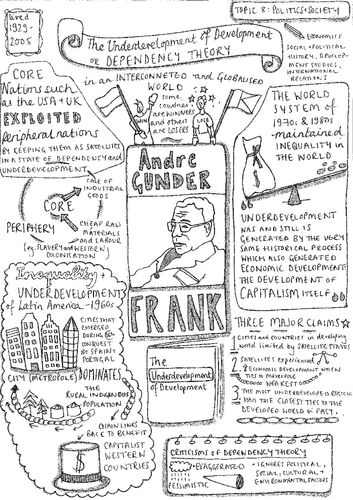 lived
1929-
2005
TOPIC 8: POLITICS + SOCIETY
The Underdevelopment of Development
OR DEPENDENCY THEORY
in an INTERCONNECTED and GLOBALISED
WORLD
ECONOMICS
SOCIAL + POLITICAL
HISTORY, DEVELOP-
MENT STUDIES,
INTERNATIONAL
RELATIONS
CORE
Nations such
as the USA + UK
EXPLOITED
peripheral nations
BY KEEPING THEM AS SATELLITES
IN A STATE OF DEPENDENCY and
UNDERDEVELOPMENT
some
countries
are WINNERS
and others
are LOSERS
THE WORLD
SYSTEM OF
1970s & 1980s
maintained
INEQUALITY IN
THE WORLD
Andre
GUNDER
FRANK
SALE OF
INDUSTRIAL
GOODS
CORE
PERIPHERY
CHEAP RAW
MATERIALS
and LABOUR
eg. SLAVERY and WESTERN
COLONISATION
UNDERDEVELOPMENT
WAS AND STILL IS
GENERATED BY THE VERY
SAME HISTORICAL PROCESS
WHICH ALSO GENERATED
ECONOMIC DEVELOPMENT:
THE DEVELOPMENT OF
CAPITALISM ITSELF
Inequality +
UNDERDEVELOPMENT
of Latin America - 1960s
CITIES THAT
EMERGED
DURING
CONQUEST
BY SPAIN +
PORTUGAL
CITY (METROPOLE) DOMINATES
THE
RURAL INDIGENOUS
POPULATION
CHAIN LINKS
BACK TO BENEFIT
CAPITALIST
WESTERN
COUNTRIES
$
The
Underdevelopment
of Development
THREE MAJOR CLAIMS
1 CITIES AND COUNTRIES IN DEVELOPING
WORLD LIMITED BY SATELLITE STATUS
2 SATELLITES EXPERIENCED
ECONOMIC DEVELOPMENT WHEN
TIES TO DEVELOPED
WEAKEST
3 THE MOST UNDERDEVELOPED REGIONS
HAD THE CLOSEST TIES TO THE
DEVELOPED WORLD in PAST.
CRITICISMS OF DEPENDENCY THEORY
EXAGGERATED
PESSIMISTIC
+ IGNORES POLITICAL,
SOCIAL, CULTURAL +
ENVIRONMENTAL FACTORS